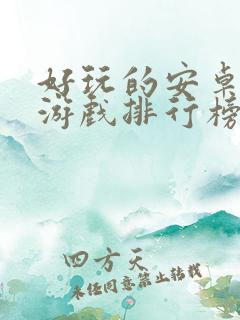 好玩的安卓
游戏排行榜
四方天
未经同意禁止转载